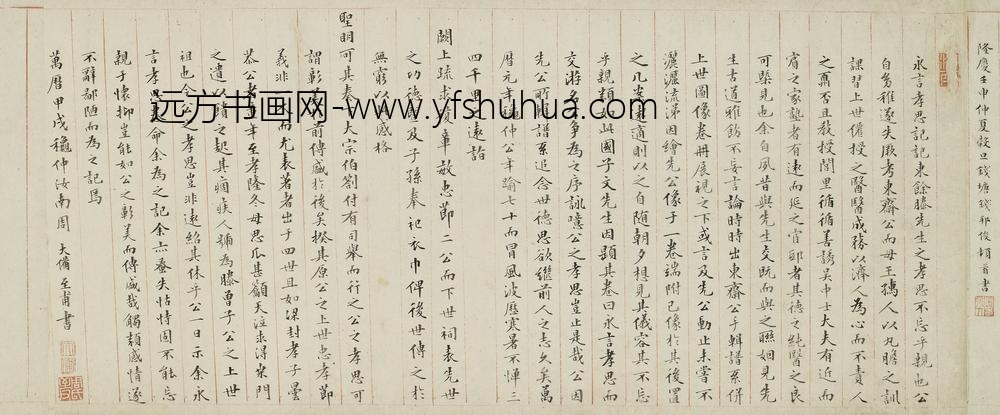 隆慶壬申仲夏穀旦錢塘錢邦俊頓首書
永言孝思記記東餘滕先生之孝思不忘乎親也公
自勿雅遂失厥考東齋公而母王撝人以丸膽之訓
課習上世儋授之醫醫成務以濟人為心而不責人
之肅否且教授閭里循循善誘吳中士夫夫有近而
肩之家塾者有遠而延之官邸者其德之純醫之良
可槩見也余自夙昔與先生交既而與之聯姻見先
生古道雅飭不妄言論時時出東齋公手輯譜系併
上世圖像卷冊展視之下或言及先公動止未嘗不
灑灑流涕因繪先公像于一卷端附己像於其後置
之几安遠適則以之自随朝夕想見其儀容其不忘
乎親類如此國子文先生因顕其卷曰永言孝思而
交游多爭為之序詠噫公之孝思豈止是哉公因
先公所帙譜系追念世德思欲繼前人之志久矣萬
曆元年禮仲公年踰七十而冒風波歷寒暑不憚三
四千里遠詣
闕上疏求復華敏忠節二公而下世祠表先世
之功德及子孫奉祀衣巾俾後世傳之於
無窮以感格
聖明可其奏大宗伯劄付有司舉而行之公之孝思可
謂彰前傳盛於後矣揆其原公之上世忠孝節
義非而尤表著者出于四世且如渫封孝子曇
恭公者年至孝隆冬母思瓜甚籲天泣求得來門
之遺以賭之起其痼疾人稱為滕曾子公之上世
祖也今公之孝思豈非遠紹其休乎公一日示余永
言孝思命余為之記余亦蚤失怙恃固不能忘
親于懷抑豈能如公之彰美而傳盛哉觸類感情遂
不辭鄙陋而為之記焉
萬曆甲戌穐仲汝南周大備至甫書
远方书画网-www.yfshuhua.com